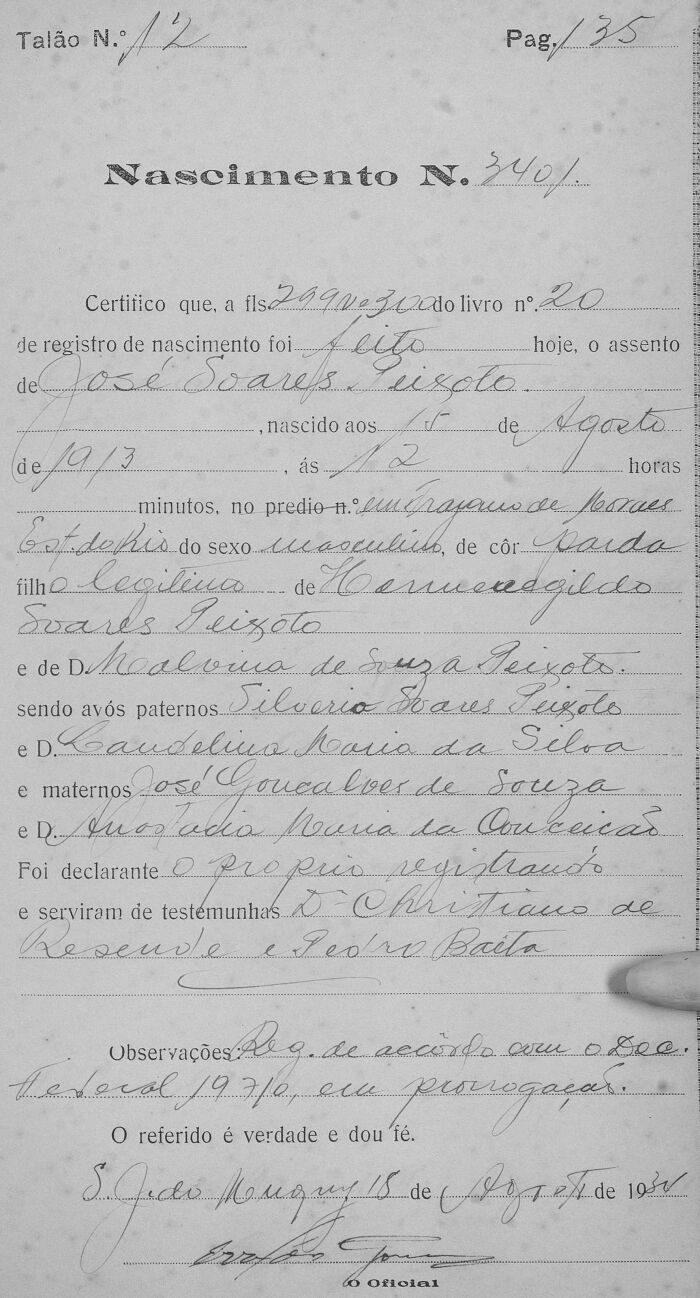 Talão N.º 12 Pag. 135
Nascimento N. 3401.
Certifico que, a fls. 299 v e 300 do livro nº. 20
de registro de nascimento foi feito hoje, o assento
de José Soares Peixoto.
, nascido aos 15 de Agosto
de 1913, ás 12 horas
minutos, no predio n.º em Trajano de Moraes
Est. do Rio do sexo masculino, de côr parda
filho legitimo de Hermenegildo
Soares Peixoto
e de D. Malvina de Souza Peixoto.
sendo avós paternos Silverio Soares Peixoto
e D. Candelina Maria da Silva
e maternos José Goncalves de Souza
e D. Anostacia Maria da Conceicão
Foi declarante o proprio registrando
e serviram de testemunhas Dr Christiano de
Resende e Pedro Baeta
Observações: Reg. de accôrdo com o Dec.
Federal 19710, em prorrogação.
O referido é verdade e dou fé.
S. J. do Muquy 18 de Agosto de 1934
O Oficial